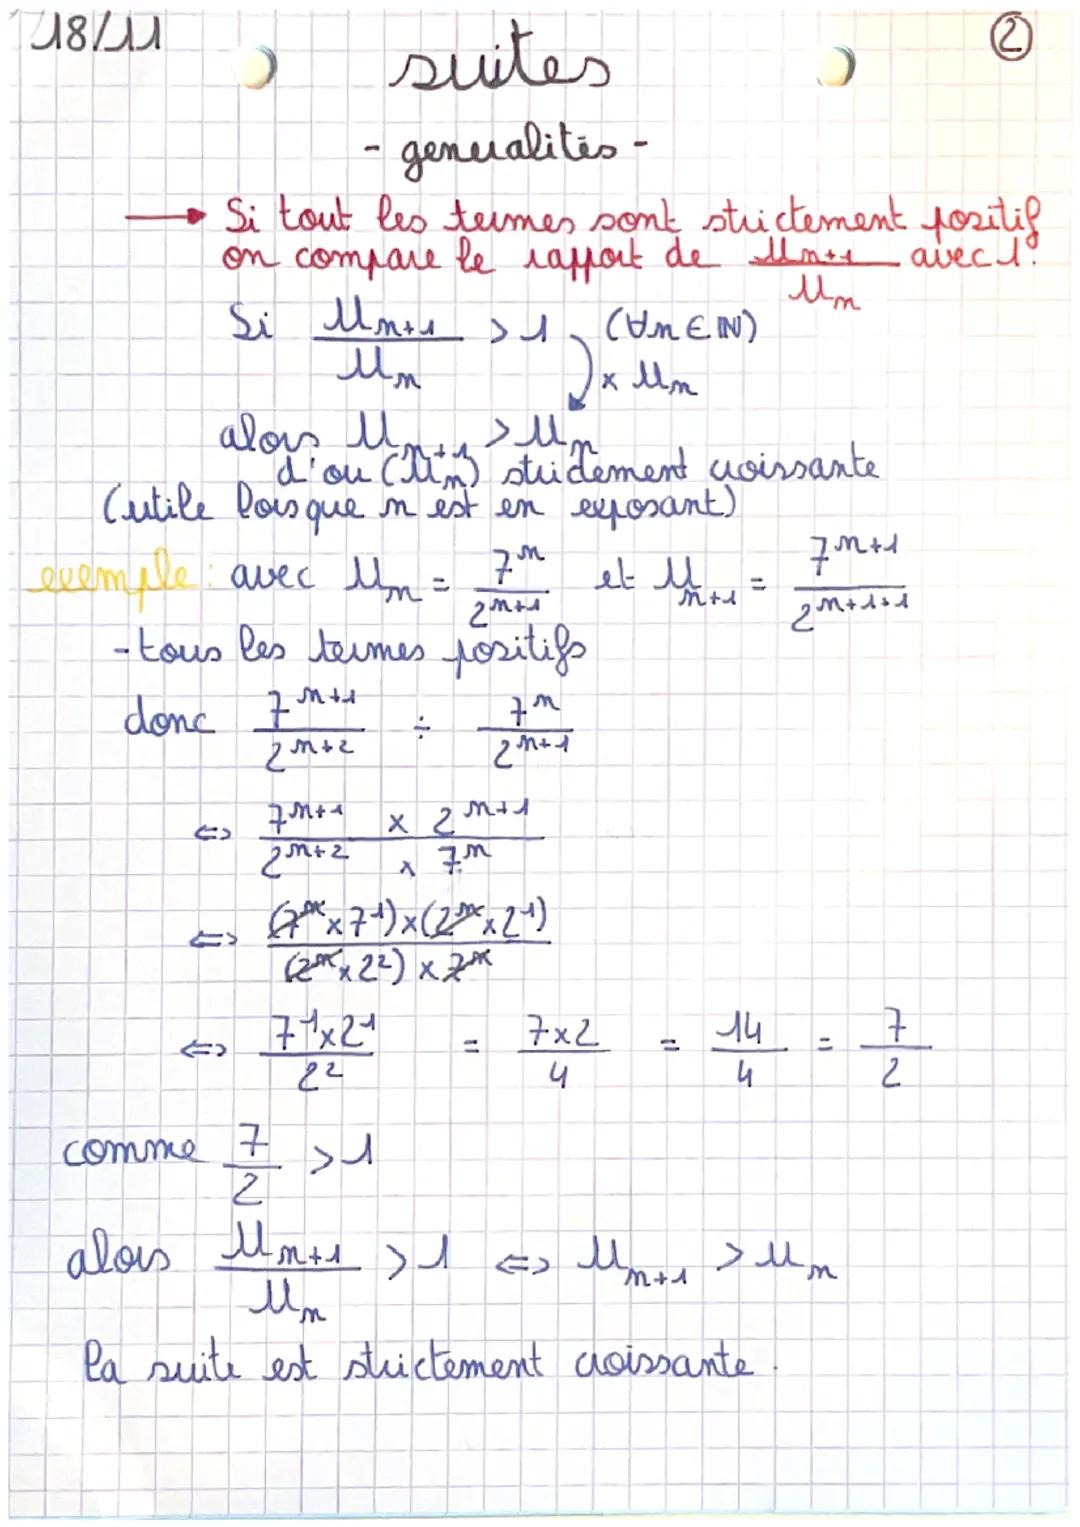 18/11
②
suites
- generalités -
→ Si tout les termes sont strictement positif
on compare le rapport de U_{n+1}/U_n avec 1.
Si U_{n+1}/U_n > 1 (∀n ∈ ℕ)
× U_n
alors U_{n+1} > U_n
d'ou (U_n) strictement croissante
(utile lorsque n est en exposant)
exemple : avec U_n = 7^n/2^{n+1} et U_{n+1} = 7^{n+1}/2^{n+1+1}
- tous les termes positifs
donc 7^{n+1}/2^{n+2} ÷ 7^n/2^{n+1}
⇔ (7^{n+1} × 2^{n+1})/(2^{n+2} × 7^n)
⇔ ((7^n × 7^1) × (2^n × 2^1))/((2^n × 2^2) × 7^n)
⇔ (7^1 × 2^1)/2^2 = (7×2)/4 = 14/4 = 7/2
comme 7/2 > 1
alors U_{n+1}/U_n > 1 ⇔ U_{n+1} > U_n
la suite est strictement croissante.